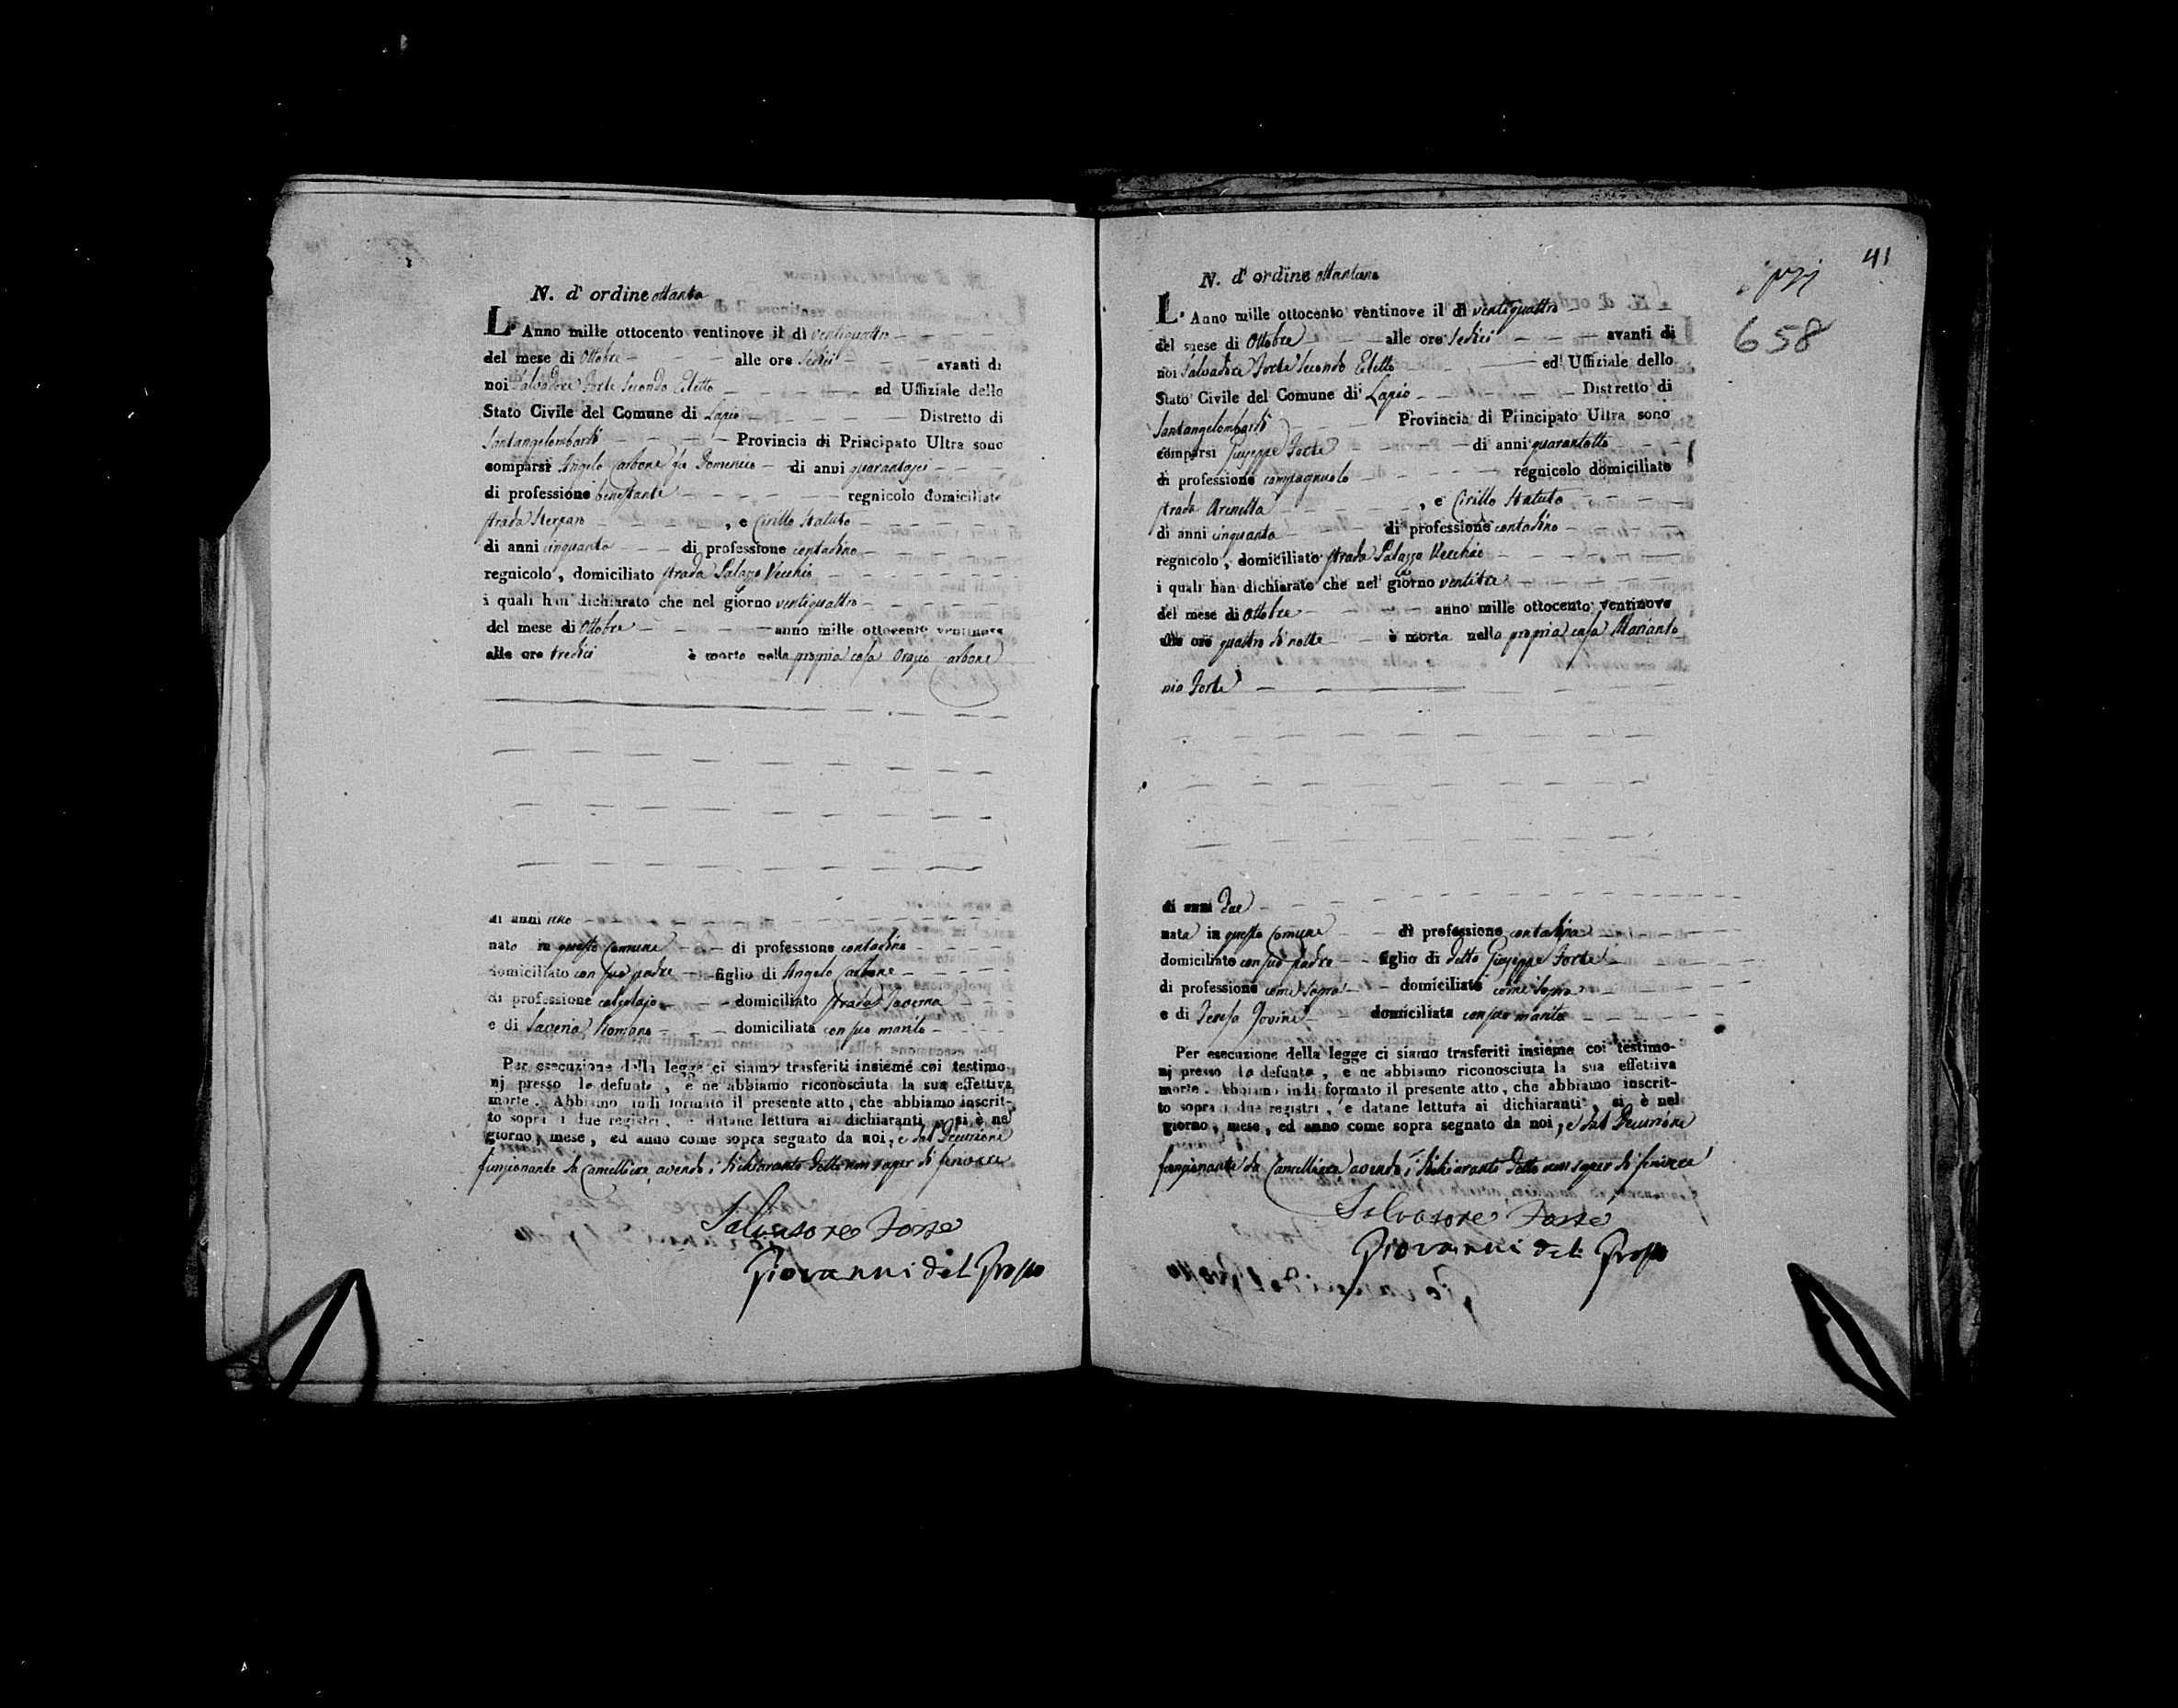 N. d'ordine ottanta
L' Anno mille ottocento ventinove il dì ventiquattro
del mese di Ottobre alle ore Sedici avanti di
noi Salvadore Forte Secondo Eletto ed Uffiziale dello
Stato Civile del Comune di Lapio Distretto di
Santangelombardi Provincia di Principato Ultra sono
comparsi Angelo Carbone fu Domenico di anni quarantasei
di professione benestante regnicolo domiciliato
strada , e Cirillo Statuto
di anni cinquanta di professione contadino
regnicolo, domiciliato strada Palazzo Vecchio
i quali han dichiarato che nel giorno ventiquattro
del mese di Ottobre anno mille ottocento ventinove
alle ore tredici è morto nella propria casa Orazio Carbone
di anni uno
nato in questo Comune di professione contadino
domiciliato con suo padre figlio di Angelo Carbone
di professione domiciliato strada Taverna
e di Saveria Romano domiciliata con suo marito
Per esecuzione della legge ci siamo trasferiti insieme coi testimo-
nj presso lo defunto, e ne abbiamo riconosciuta la sua effettiva
morte. Abbiamo indi formato il presente atto, che abbiamo inscrit-
to sopra i due registri, e datane lettura ai dichiaranti, si è nel
giorno, mese, ed anno come sopra segnato da noi, e dal Decurione
funzionante da Cancelliere avendo i dichiaranti detto non saper di scrivere
Salvatore Forte
Giovanni del Grosso
41
658
N. d'ordine ottantuno
L' Anno mille ottocento ventinove il dì ventiquattro
del mese di Ottobre alle ore Sedici avanti di
noi Salvadore Forte Secondo Eletto ed Uffiziale dello
Stato Civile del Comune di Lapio Distretto di
Santangelombardi Provincia di Principato Ultra sono
comparsi Giuseppe Forte di anni quarantotto
di professione campagnuolo regnicolo domiciliato
strada Arenella , e Cirillo Statuto
di anni cinquanta di professione contadino
regnicolo, domiciliato strada Palazzo Vecchio
i quali han dichiarato che nel giorno ventitre
del mese di Ottobre anno mille ottocento ventinove
alle ore quattro di notte è morta nella propria casa Marianto
nia Forte
di anni Due
nata in questo Comune di professione contadina
domiciliata con suo padre figlio di detto Giuseppe Forte
di professione come sopra domiciliato come sopra
e di Teresa Iovine domiciliata con suo marito
Per esecuzione della legge ci siamo trasferiti insieme coi testimo-
nj presso la defunta, e ne abbiamo riconosciuta la sua effettiva
morte. Abbiamo indi formato il presente atto, che abbiamo inscrit-
to sopra i due registri, e datane lettura ai dichiaranti, si è nel
giorno, mese, ed anno come sopra segnato da noi, e dal Decurione
funzionante da Cancelliere avendo i dichiaranti detto non saper di scrivere
Salvatore Forte
Giovanni del Grosso